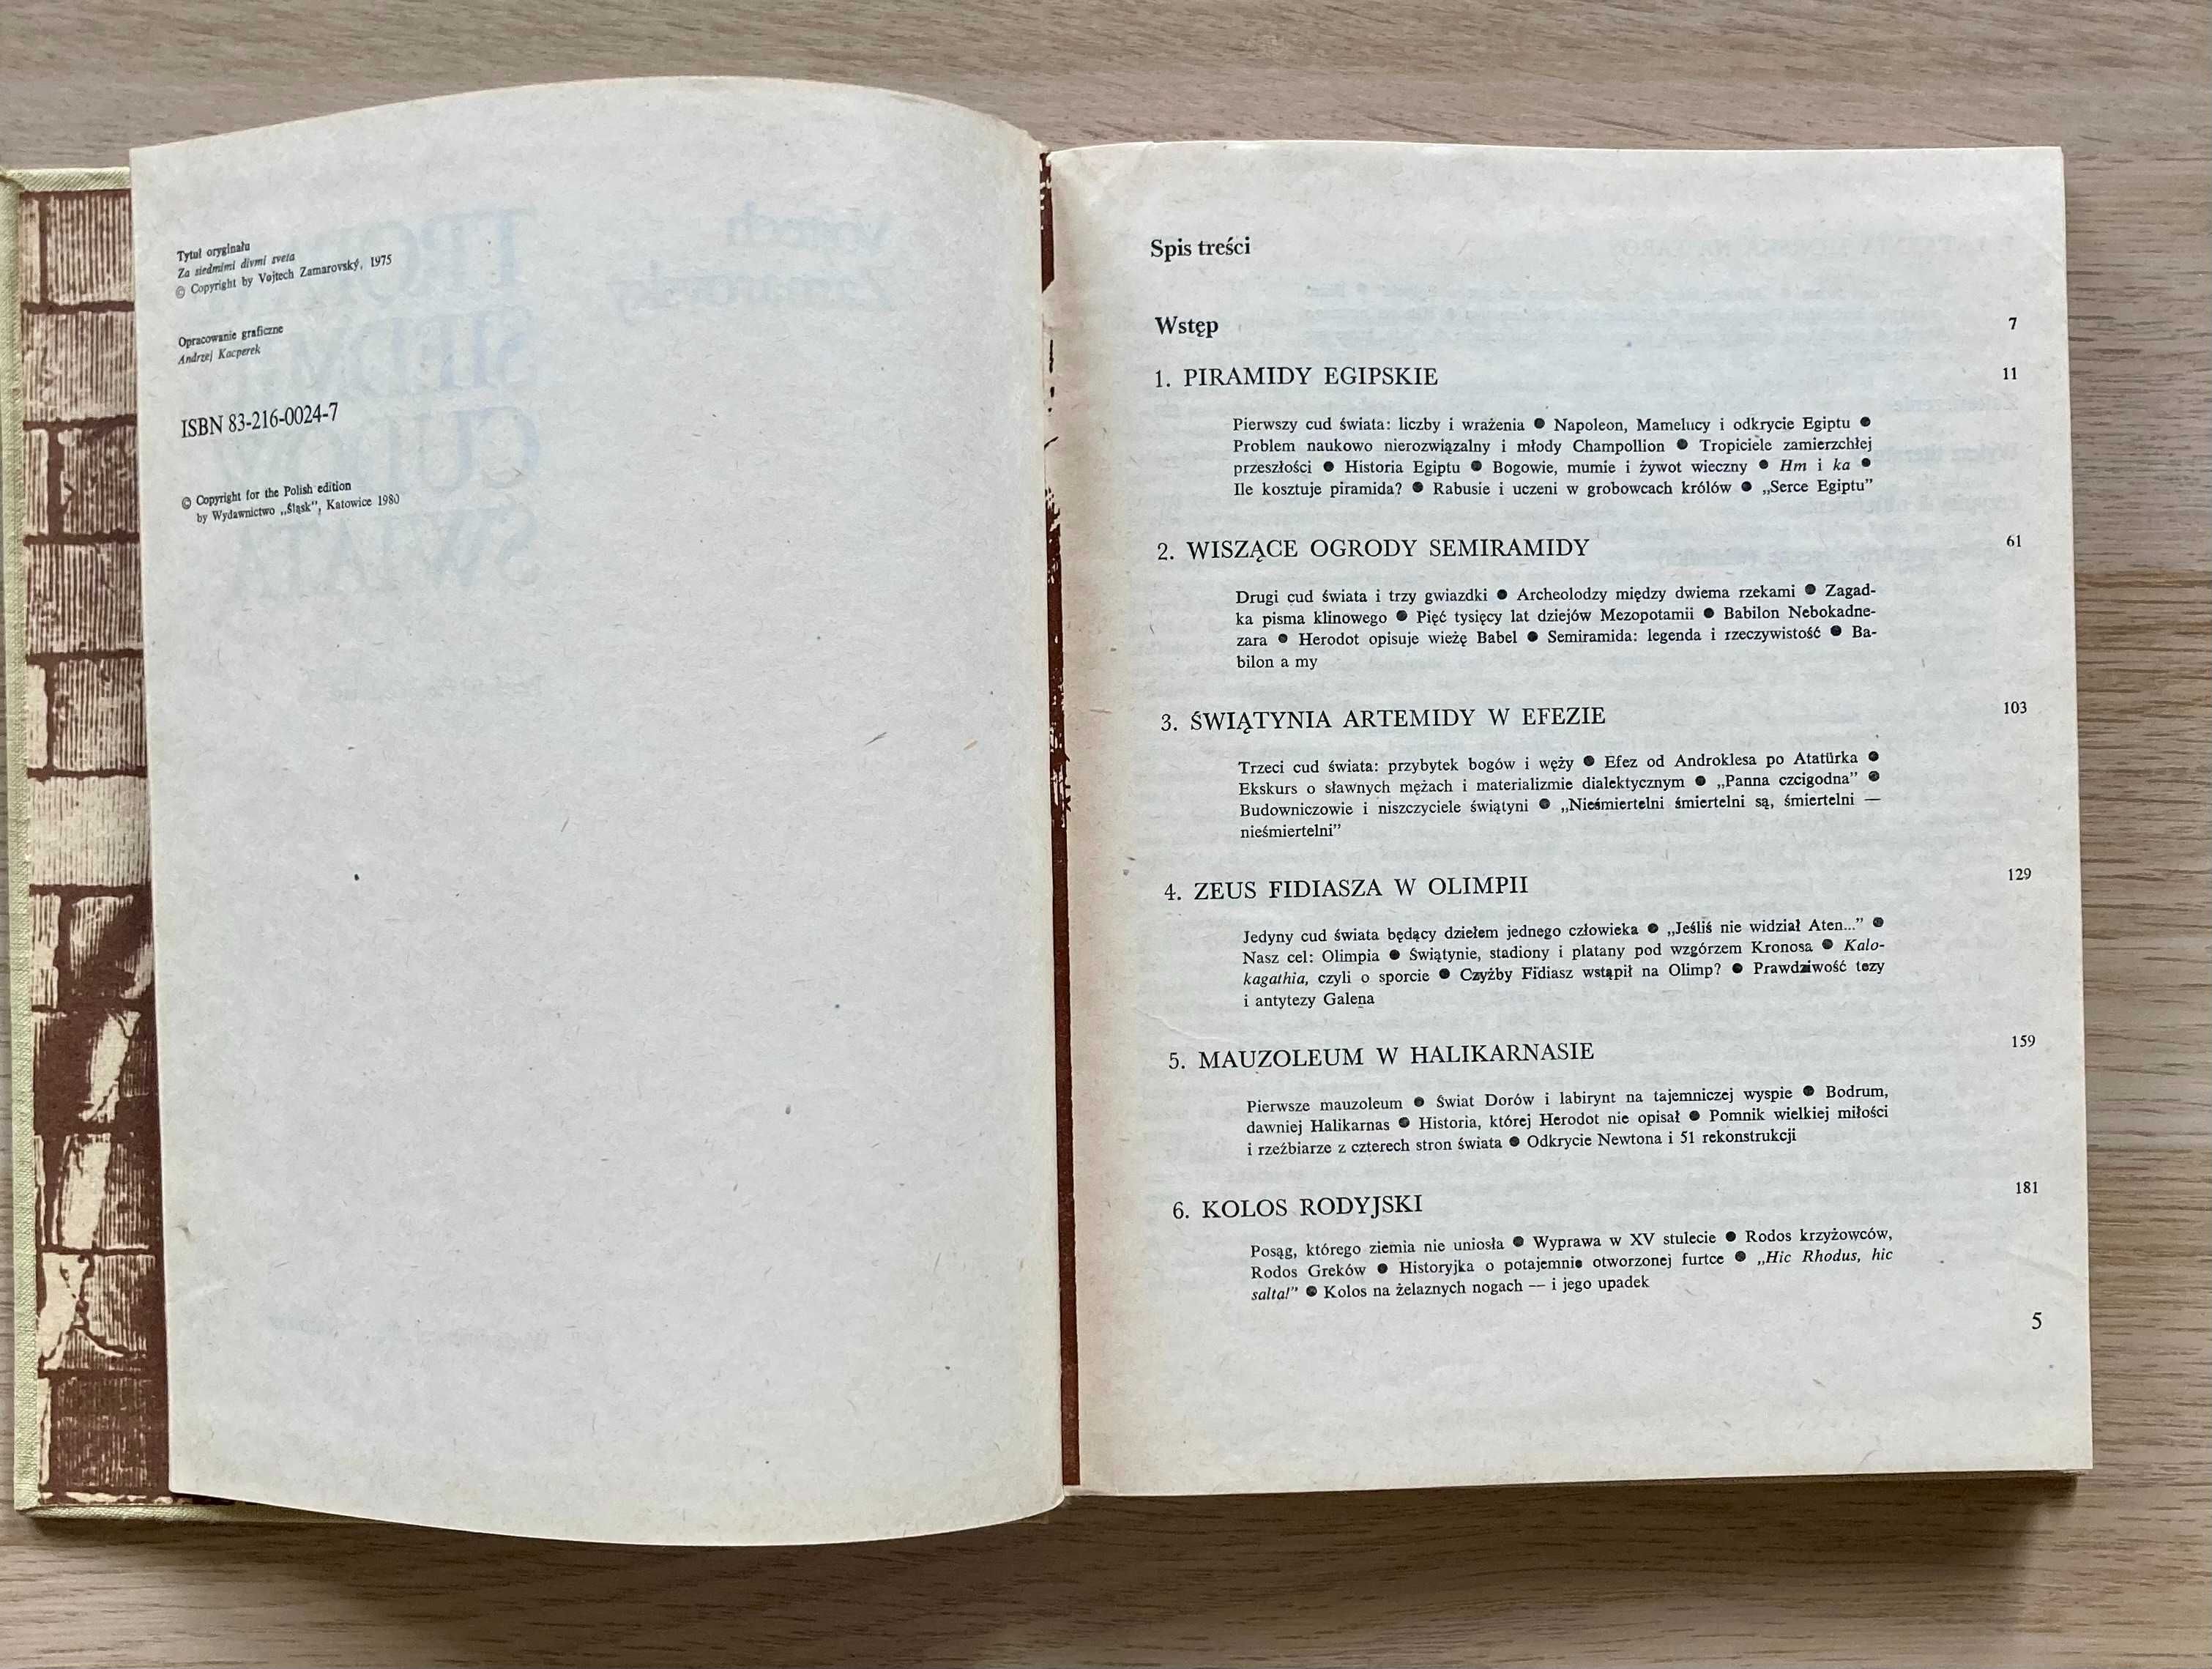 Tytuł oryginału
Za siedmimi divmi sveta
© Copyright by Vojtech Zamarovský, 1975
Opracowanie graficzne
Andrzej Kacperek
ISBN 83-216-0024-7
© Copyright for the Polish edition
by Wydawnictwo „Śląsk”, Katowice 1980
Spis treści
Wstęp 7
1. PIRAMIDY EGIPSKIE 11
Pierwszy cud świata: liczby i wrażenia ● Napoleon, Mamelucy i odkrycie Egiptu ●
Problem naukowo nierozwiązalny i młody Champollion ● Tropiciele zamierzchłej
przeszłości ● Historia Egiptu ● Bogowie, mumie i żywot wieczny ● Hm i ka ●
Ile kosztuje piramida? ● Rabusie i uczeni w grobowcach królów ● „Serce Egiptu”
2. WISZĄCE OGRODY SEMIRAMIDY 61
Drugi cud świata i trzy gwiazdki ● Archeolodzy między dwiema rzekami ● Zagad-
ka pisma klinowego ● Pięć tysięcy lat dziejów Mezopotamii ● Babilon Nebokadne-
zara ● Herodot opisuje wieżę Babel ● Semiramida: legenda i rzeczywistość ● Ba-
bilon a my
3. ŚWIĄTYNIA ARTEMIDY W EFEZIE 103
Trzeci cud świata: przybytek bogów i węży ● Efez od Androklesa po Atatürka ●
Ekskurs o sławnych mężach i materializmie dialektycznym ● „Panna czcigodna” ●
Budowniczowie i niszczyciele świątyni ● „Nieśmiertelni śmiertelni są, śmiertelni —
nieśmiertelni”
4. ZEUS FIDIASZA W OLIMPII 129
Jedyny cud świata będący dziełem jednego człowieka ● „Jeśliś nie widział Aten...” ●
Nasz cel: Olimpia ● Świątynie, stadiony i platany pod wzgórzem Kronosa ● Kalo-
kagathia, czyli o sporcie ● Czyżby Fidiasz wstąpił na Olimp? ● Prawdziwość tezy
i antytezy Galena
5. MAUZOLEUM W HALIKARNASIE 159
Pierwsze mauzoleum ● Świat Dorów i labirynt na tajemniczej wyspie ● Bodrum,
dawniej Halikarnas ● Historia, której Herodot nie opisał ● Pomnik wielkiej miłości
i rzeźbiarze z czterech stron świata ● Odkrycie Newtona i 51 rekonstrukcji
6. KOLOS RODYJSKI 181
Posąg, którego ziemia nie uniosła ● Wyprawa w XV stulecie ● Rodos krzyżowców,
Rodos Greków ● Historyjka o potajemnie otworzonej furtce ● „Hic Rhodus, hic
salta!” ● Kolos na żelaznych nogach — i jego upadek
5